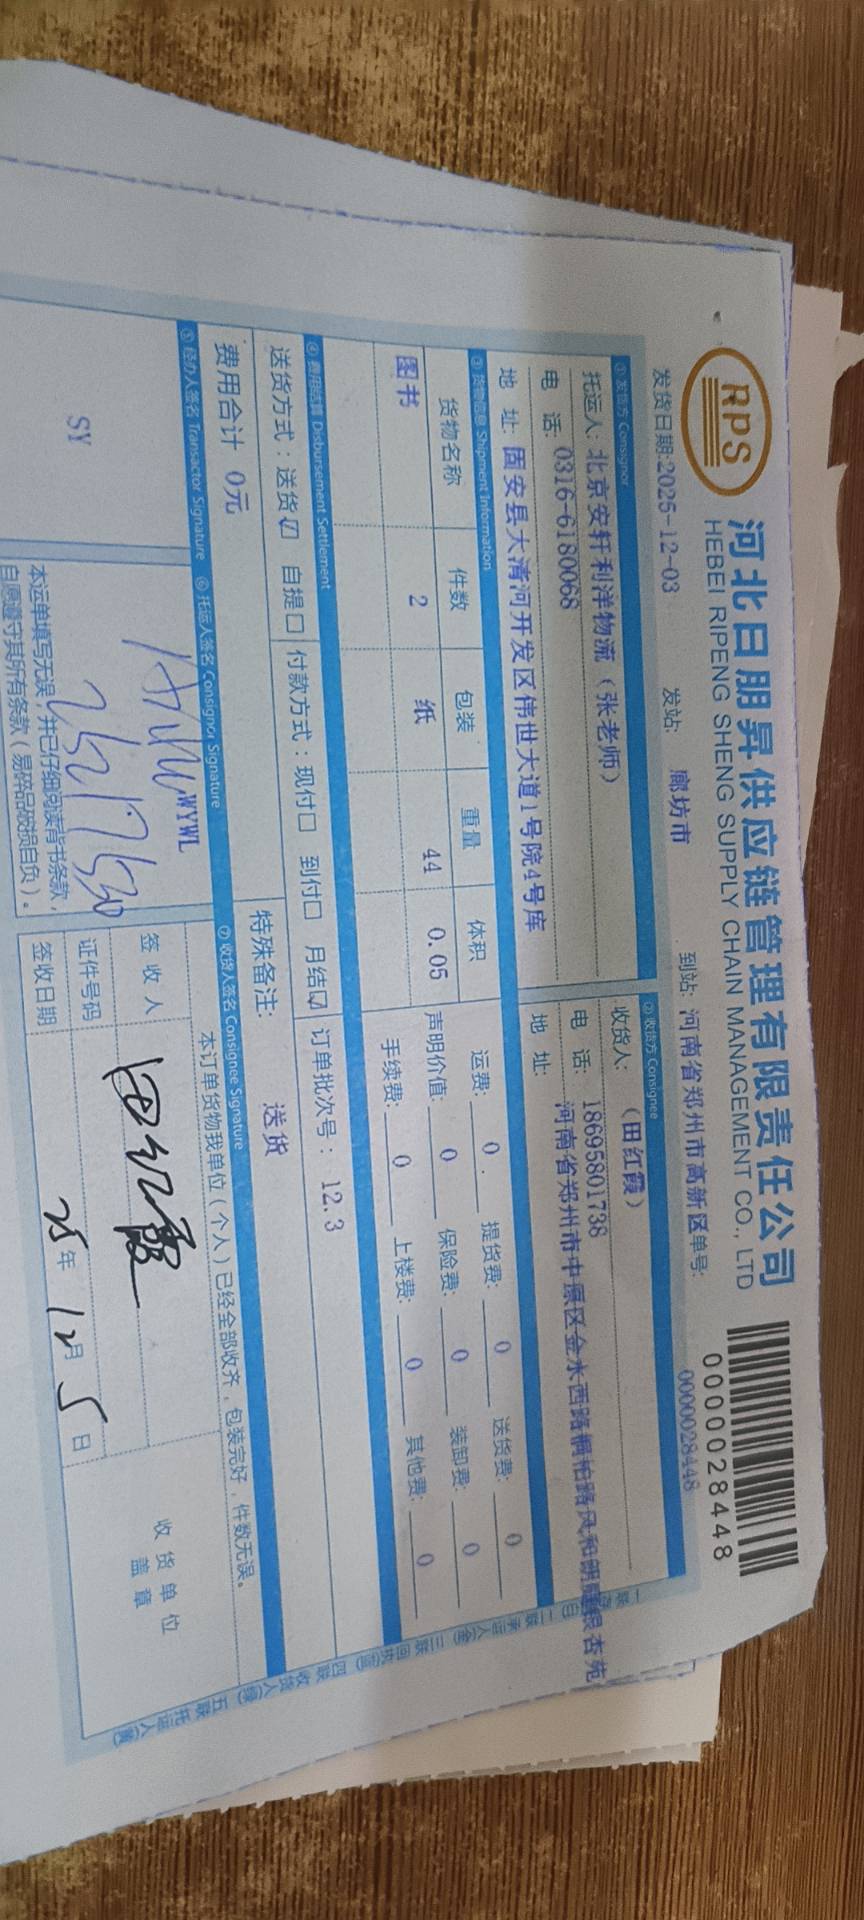 RPS
河北日朋昇供应链管理有限责任公司
HEBEI RIPENG SHENG SUPPLY CHAIN MANAGEMENT CO., LTD
0000028448
发货日期:2025-12-03 发站: 廊坊市 到站: 河南省郑州市高新区 单号: 0000028448
① 发货方 Consignor
托运人: 北京安轩利洋物流（张老师）
电 话: 0316-6180068
地 址: 固安县大清河开发区伟世大道1号院4号库
② 收货方 Consignee
收货人: （田红霞）
电 话: 18695801738
地 址: 河南省郑州市中原区金水西路桐柏路风和朗庭银杏苑
③ 货物信息 Shipment Information
货物名称 件数 包装 重量 体积
图书 2 纸 44 0.05
运费: 0 提货费: 0 送货费: 0
声明价值: 0 保险费: 0 装卸费: 0
手续费: 0 上楼费: 0 其他费: 0
④ 费用结算 Disbursement Settlement
送货方式：送货☑ 自提□ 付款方式：现付□ 到付□ 月结☑ 订单批次号： 12.3
费用合计 0元
特殊备注: 送货
⑤ 经办人签名 Transactor Signature
SY
⑥ 托运人签名 Consignor Signature
WYWL
本运单填写无误，并已仔细阅读背书条款，
自愿遵守其所有条款（易碎品破损自负）。
⑦ 收货人签名 Consignee Signature
本订单货物我单位（个人）已经全部收齐，包装完好，件数无误。
签 收 人 田红霞
证件号码
签收日期 25年 12月 5日
收 货 单 位
盖 章